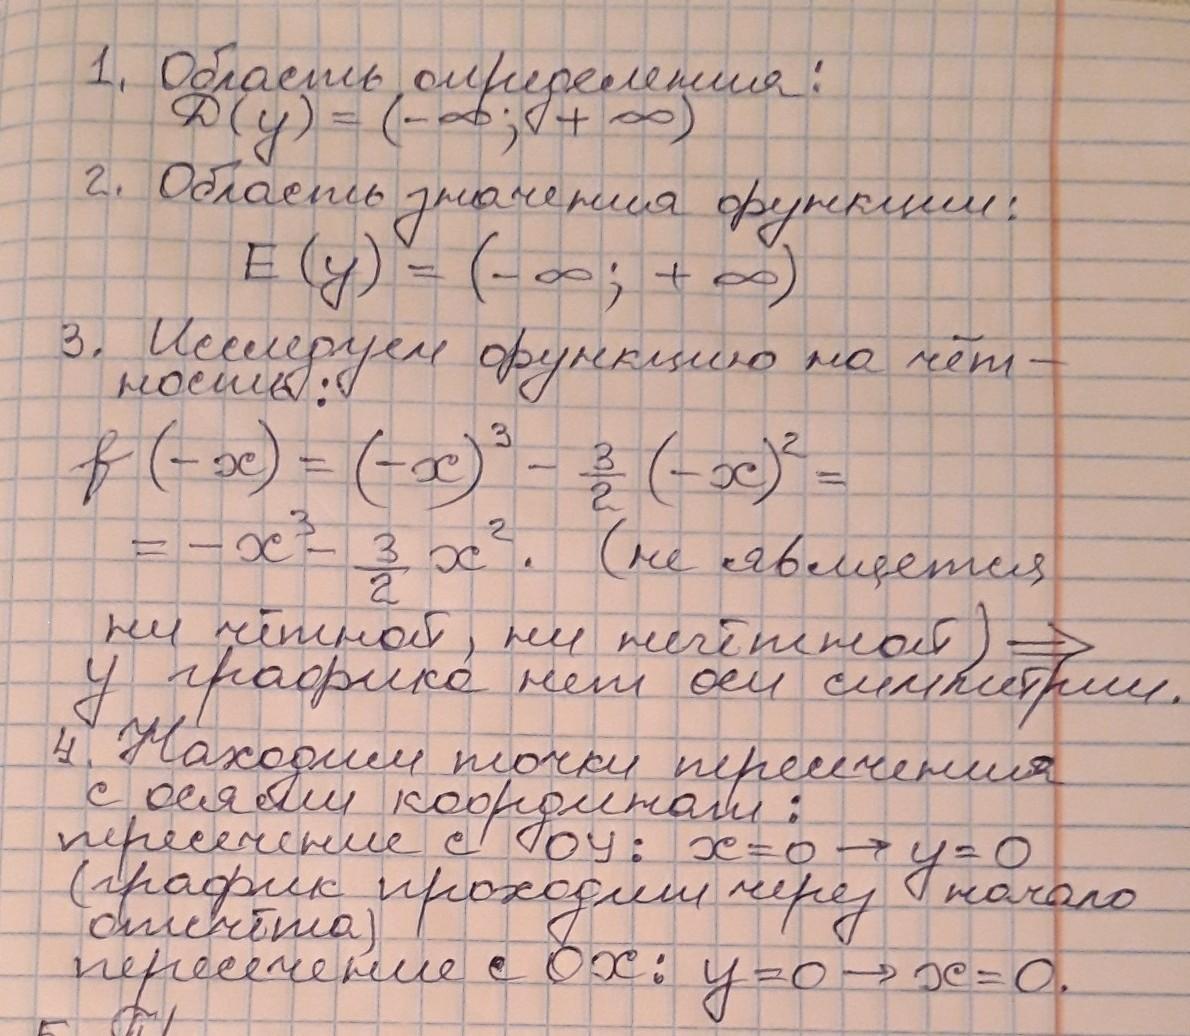 1. Область определения:
D(y) = (-∞; +∞)
2. Область значения функции:
E(y) = (-∞; +∞)
3. Исследуем функцию на чёт-
ность:
f(-x) = (-x)³ - 3/2 (-x)² =
= -x³ - 3/2 x². (не является
ни чётной, ни нечётной) ⇒
у графика нет оси симметрии.
4. Находим точки пересечения
с осями координат:
пересечение с OY: x=0 → y=0
(график проходит через начало
отсчёта)
пересечение с Ox: y=0 → x=0.
5.